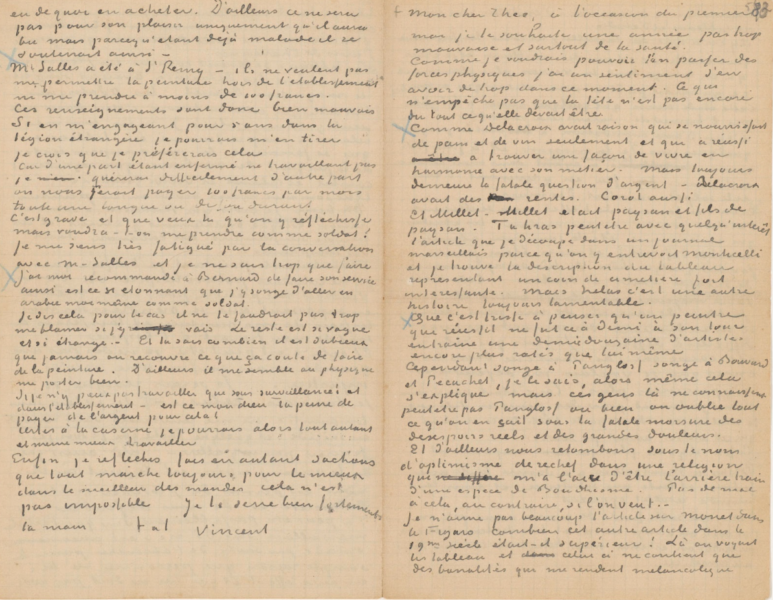 en de quoi en acheter. D'ailleurs ce ne sera
pas pour son plaisir uniquement qu'il aura
ou mais parcequ'étant déjà malade il se
soutenait aussi –
Mr Salles a été à St Remy – ils ne veulent pas
me permettre la peinture hors de l'etablissement
ni me prendre à moins de 100 francs.
Ces renseignements sont donc bien mauvais
Si en m'engageant pour 5 ans dans la
légion étrangère je pourrais m'en tirer
je crois que je préférerais cela
Car d'une part étant enfermé ne travaillant pas
je guérirai difficilement d'autre part
on nous ferait payer 100 francs par mois
toute une longue vie de fou durant
C'est grave et que veux tu qu'on y réfléchisse
mais voudra-t-on me prendre comme soldat?
Je me sens très fatigué par la conversation
avec M. Salles et je ne sais trop que faire
J'ai moi recommandé à Bernard de faire son service
ainsi est ce si étonnant que j'y songe d'aller en
arabie moi même comme soldat.
Je dis cela pour le cas il ne le faudrait pas trop
me blamer si j'y vais Le reste est si vague
et si étrange. – Et tu sais combien il est dubieux
que jamais on recouvre ce que ça coute de faire
de la peinture. D'ailleurs il me semble au physique
me porter bien.
Si je n'y peux pas travailler que sous surveillance! et
dans l'etablissement – est ce mon dieu la peine de
payer de l'argent pour cela!
Certes à la caserne je pourrais alors tout autant
et meme mieux travailler
Enfin je réfléchis fais en autant sachons
que tout marche toujours pour le mieux
dans le meilleur des mondes cela n'est
pas impossible Je te serre bien fortement
la main t. à t. Vincent
83
Mon cher Theo, à l'occasion du premier
mai je te souhaite une année pas trop
mauvaise et surtout de la santé.
Comme je voudrais pouvoir t'en passer des
forces physiques j'ai un sentiment d'en
avoir de trop dans ce moment. Ce qui
n'empêche pas que la tête n'est pas encore
du tout ce qu'elle devait être
Comme Delacroix avait raison qui se nourrissait
de pain et de vin seulement et qui a réussi
à trouver une façon de vivre en
harmonie avec son métier. Mais toujours
demeure la fatale question d'argent – Delacroix
avait des rentes. Corot aussi
Et Millet – Millet etait paysan et fils de
paysan. Tu liras peutetre avec quelqu'interêt
l'article que je découpe dans un journal
marseillais parce qu'on y entrevoit monticelli
et je trouve la description du tableau
représentant un coin de cimetière fort
interessante. Mais hélas c'est une autre
histoire toujours lamentable.
Que c'est triste à penser qu'un peintre
que réussit ne fut ce à demi à son tour
entraine une demidouzaine d'artistes
encore plus ratés que lui même
Cependant songe à Pangloss songe à Bouvard
et Pecuchet, je le sais, alors même cela
s'explique mais ces gens là ne connaissent
peutetre pas Pangloss ou bien on oublie tout
ce qu'on en sait sous la fatale morsure des
desespoirs réels et des grandes douleurs.
Et d'ailleurs nous retombons sous le nom
d'optimisme de rechef dans une religion
qui m'a l'air d'être l'arriere train
d'une espece de Bouddhisme. Pas de mal
à cela, au contraire, si l'on veut. –
Je n'aime pas beaucoup l'article sur Monet dans
le Figaro combien cet autre article dans le
19me siècle était-il superieur! Là on voyait
les tableaux et celui ci ne contient que
des banalités qui me rendent mélancolique